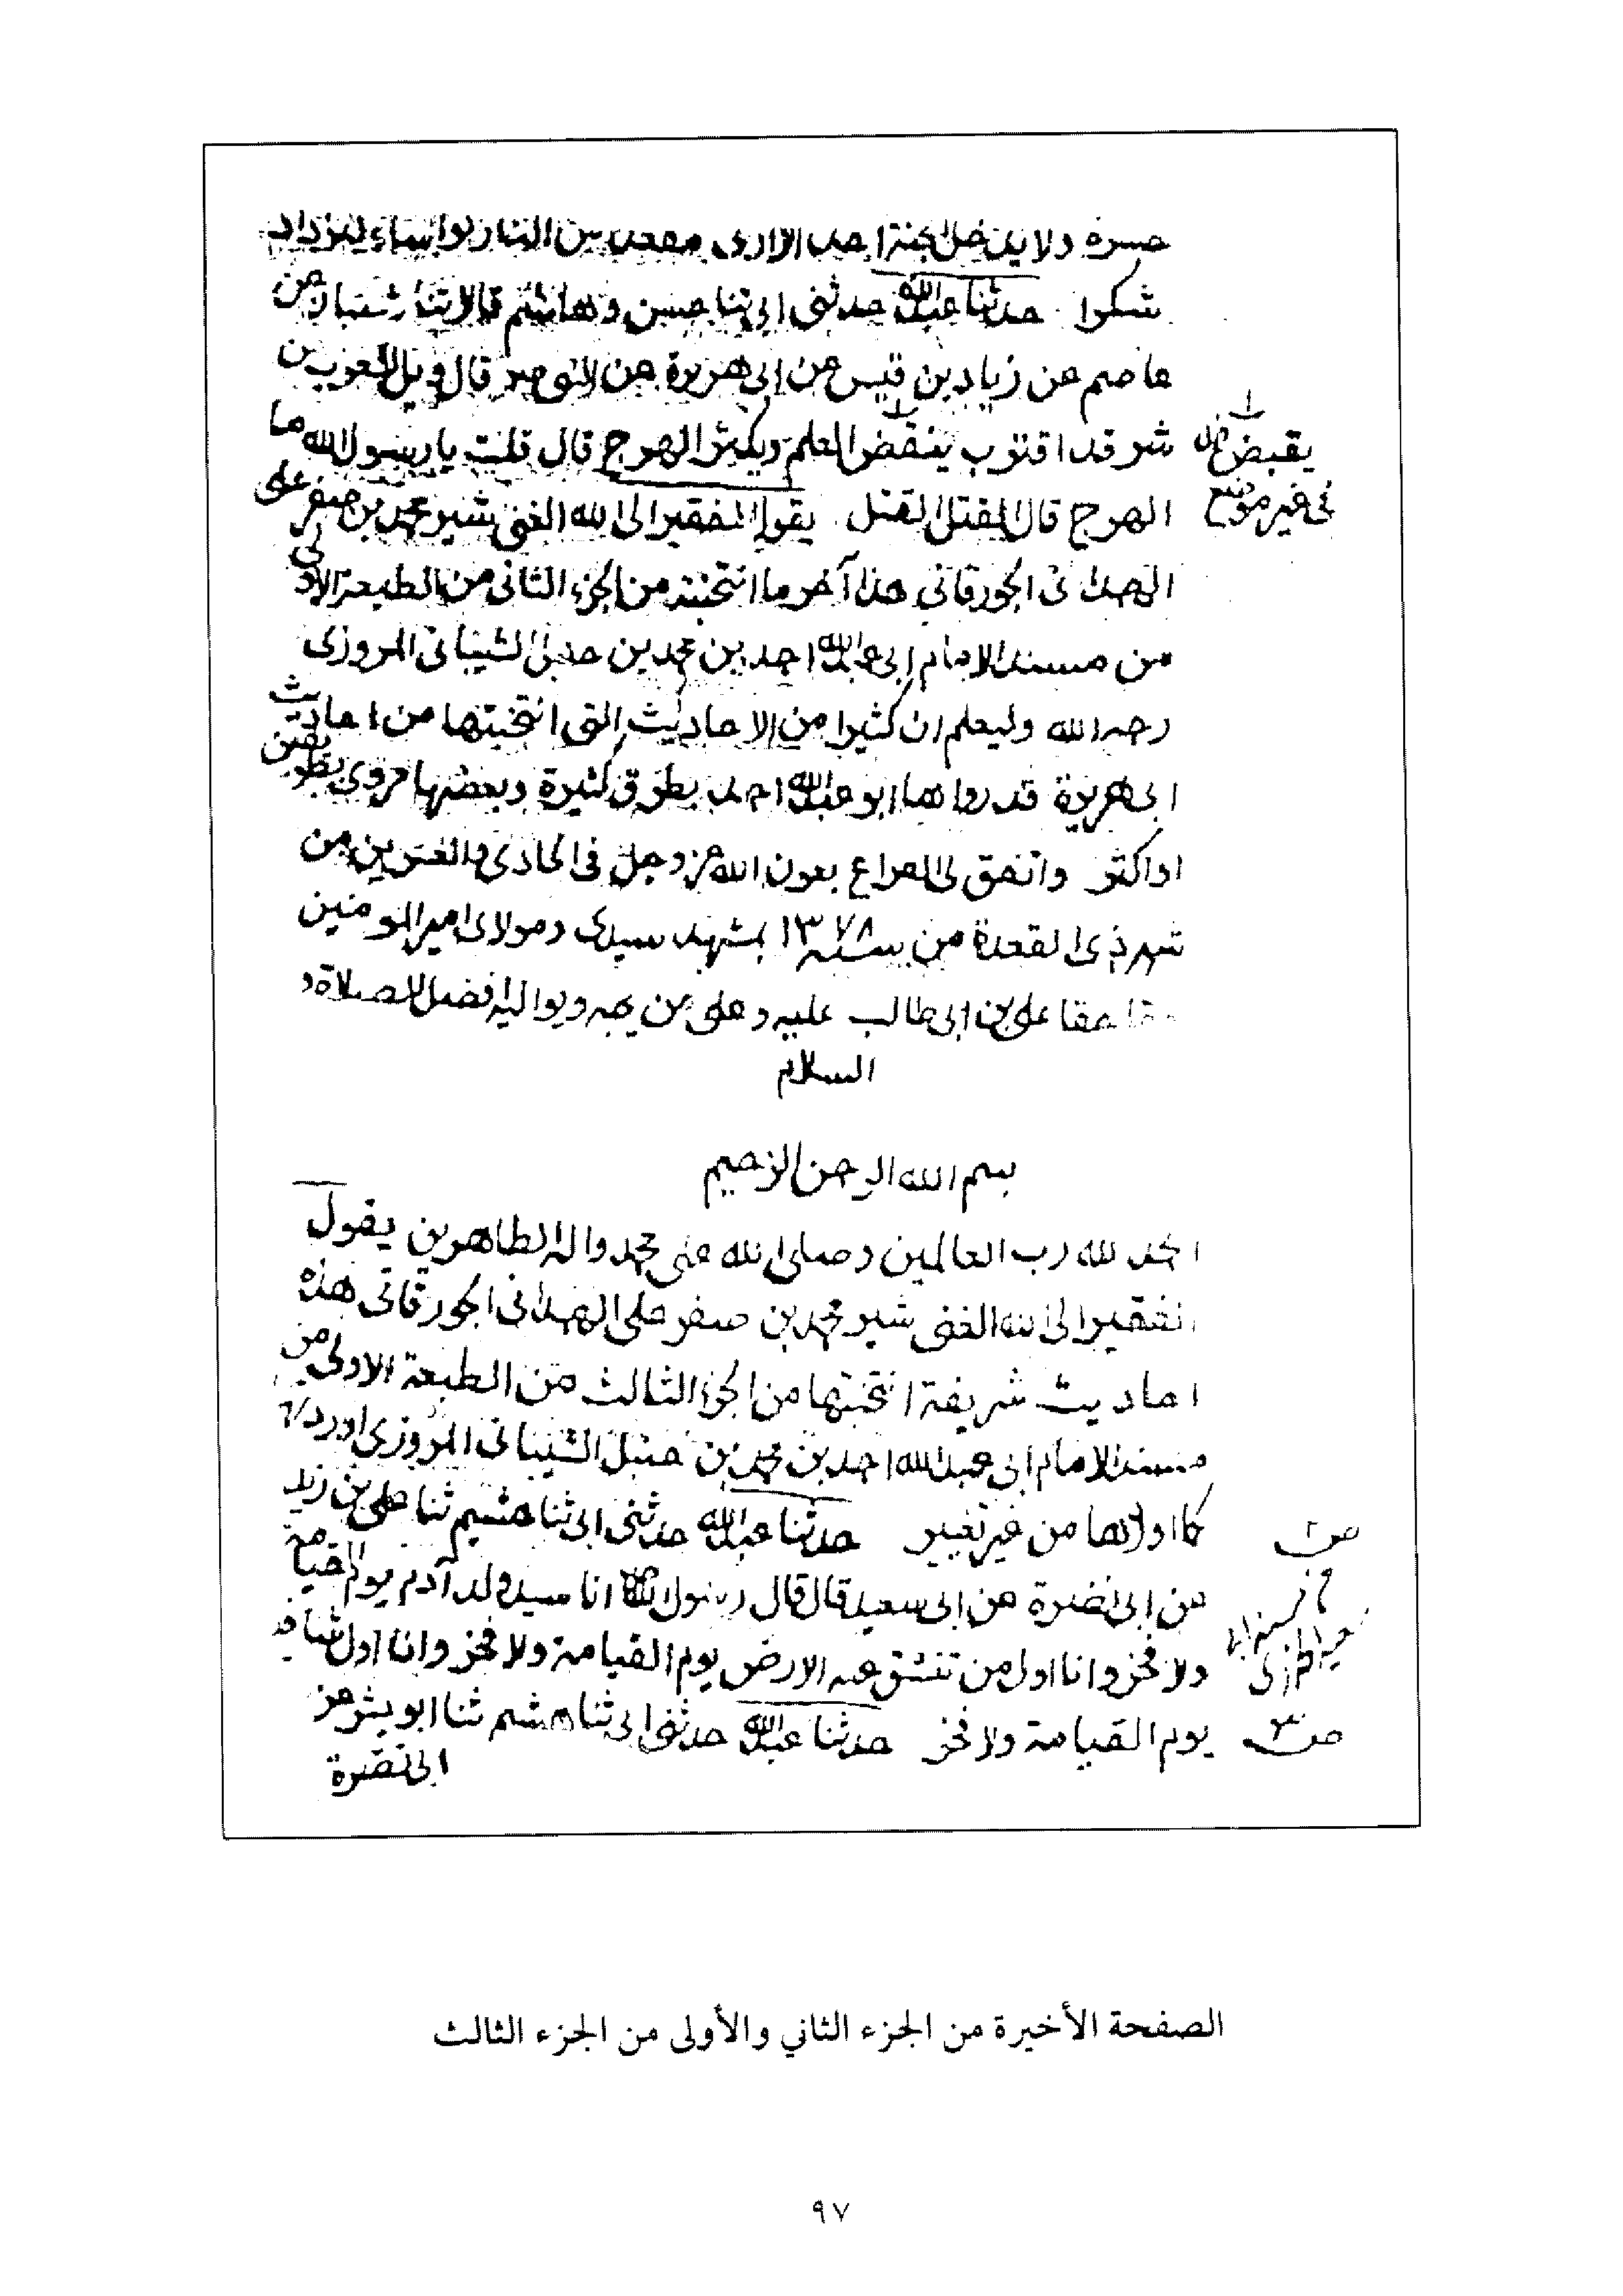 حسرة ولا يدخل الجنة احد الا ارى مقعده من النار لو اساء ليزداد
شكرا حدثنا عبد الله حدثنى ابى ثنا حسن وهاشم قالا ثنا شيبان عن
عاصم عن زياد بن قيس عن ابى هريرة عن النبى ص قال ويل للعرب من
شر قد اقترب ينقض العلم ويكثر الهرج قال قلت يا رسول الله ما
يقبض
فى غير موضع
الهرج قال القتل القتل يقول الفقير الى الله الغنى شير محمد بن صفر على
الهمدانى الجورقانى هذا آخر ما انتخبته من الجزء الثانى من الطبعة الاولى
من مسند الامام ابى عبد الله احمد بن محمد بن حنبل الشيبانى المروزى
رحمه الله وليعلم ان كثيرا من الاحاديث التى انتخبتها من احاديث
ابى هريرة قد رواها ابو عبد الله احمد بطرق كثيرة وبعضها مروى بطريقين
او اكثر واتفق لى الفراغ بعون الله عز وجل فى الحادى والعشرين من
شهر ذى القعدة من سنة ١٣٧٨ بمشهد سيدى ومولاى امير المومنين
حقا حقا على بن ابى طالب عليه وعلى من يحبه ويواليه افضل الصلاة و
السلام
بسم الله الرحمن الرحيم
الحمد لله رب العالمين وصلى الله على محمد واله الطاهرين يقول
الفقير الى الله الغنى شير محمد بن صفر على الهمدانى الجورقانى هذه
احاديث شريفة انتخبتها من الجزء الثالث من الطبعة الاولى من
مسند الامام ابى عبد الله احمد بن محمد بن حنبل الشيبانى المروزى اوردها
كما اوردها من غير تغيير حدثنا عبد الله حدثنى ابى ثنا هشيم ثنا على بن زيد
ص ٢
عن ابى نضرة عن ابى سعيد قال قال رسول الله انا سيد ولد آدم يوم القيامة
ولا فخر وانا اول من تنشق عنه الارض يوم القيامة ولا فخر وانا اول شافع
يوم القيامة ولا فخر حدثنا عبد الله حدثنى ابى ثنا هشيم ثنا ابو بشر عن
ص ٣
ابى نضرة
الصفحة الأخيرة من الجزء الثاني والأولى من الجزء الثالث
٩٧